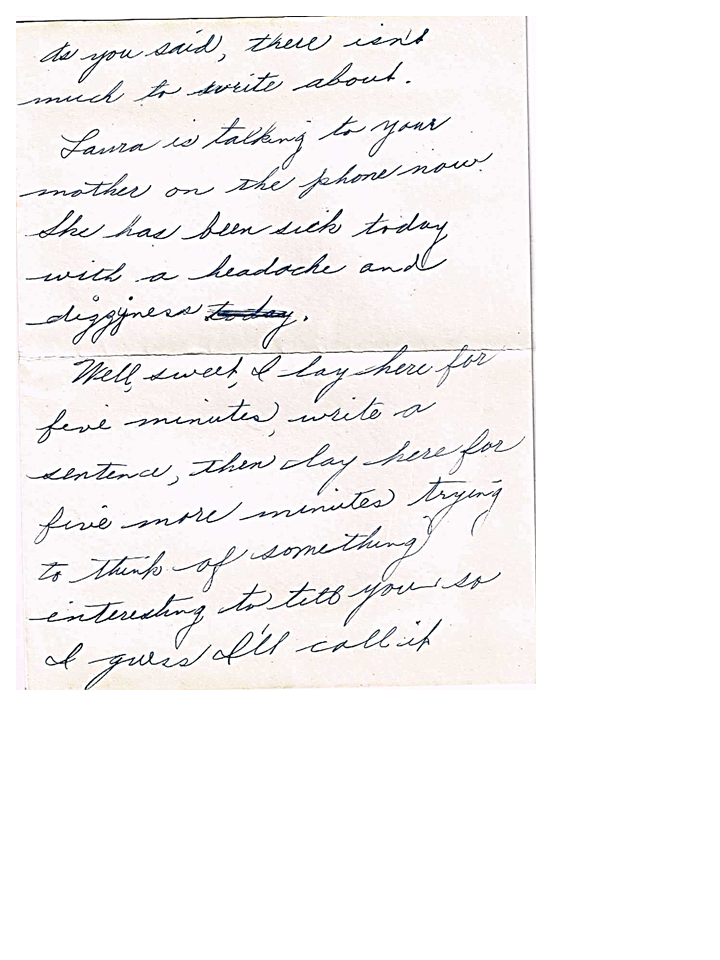 As you said, there isn't
much to write about.
Laura is talking to your
mother on the phone now.
She has been sick today
with a headache and
dizzyness today.
Well, sweet, I lay here for
five minutes, write a
sentence, then lay here for
five more minutes trying
to think of something
interesting to tell you so
I guess I'll call it